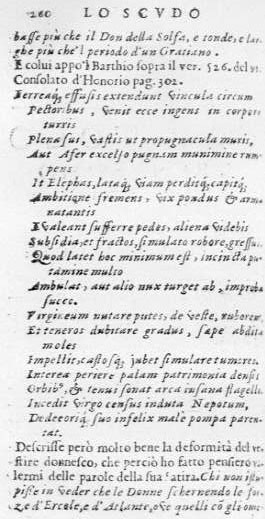 260 LO SCVDO
basse più che il Don della Solfa, e tonde, e lar
ghe più che'l periodo d'un Gratiano.
E colui appo'l Barthio sopra il ver. 526. del
Consolato d'Honorio pag. 302.
Ferreaq; effusis extendunt vincula circum
Pectoribus, venit ecce ingens in corpore
turris
Plena sui, vastis ut propugnacula muris,
Aut Afer excelso pugnam munimine rum-
pens
It Elephas, lataq; viam perditq; capitq;
Ambitione fremens, vix pondus & arma
natantis
Evaleant sufferre pedes, aliena videbis
Subsidia, et fractos, simulato robore, gressus.
Quod latet hoc minimum est, incincta pu-
tamine multo
Ambulat, aut alio nux turget ab, improba
succo.
Virgineum nutare putes, de veste, ruborem
Et teneros dubitare gradus, sæpe abdita
moles
Impellit, castosq; jubet simulare tumores.
Interea periere palam patrimonia densis
Orbibꝰ, & tenui sonat arca insana flagello
Incedit virgo census induta Nepotum,
Dedecoriq; suo infelix male pompa paren-
tat.
Descrisse però molto bene la deformità del ve-
stire donnesco, che perciò ho fatto pensiero va
lermi delle parole della sua satira. Chi non istu-
pisse in veder che le Donne schernendo le for-
ze d'Ercole, e d'Atlante, ove quelli cō gli ome